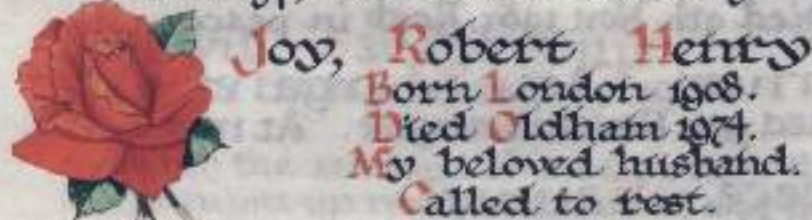 Joy, Robert Henry
Born London 1908.
Died Oldham 1974.
My beloved husband.
Called to rest.